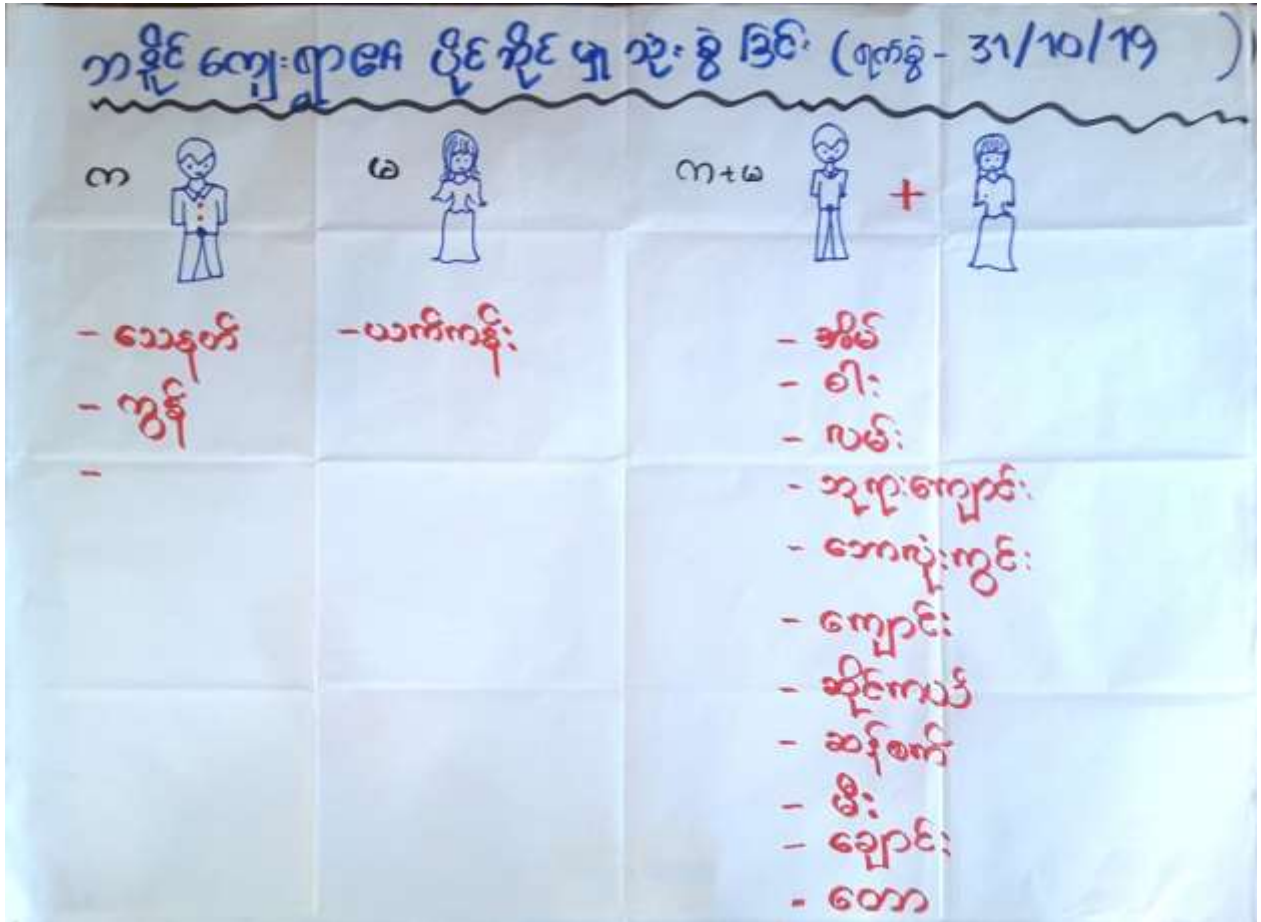 ဘနိူင် ကျေးရွာ၏ ပိုင်ဆိုင် မျှ သုံး စွဲ ခြင်း (ရက်စွဲ - 31/10/19 )
က မ က+မ +
- သေနတ် - ယက်ကန်း - အိမ်
- ကွန် - ဝါး
- - လမ်း
- ဘုရားကျောင်း
- ဘောလုံးကွင်း
- ကျောင်း
- ဆိုင်ကယ်
- ဆန်စက်
- မီး
- ချောင်း
- တော